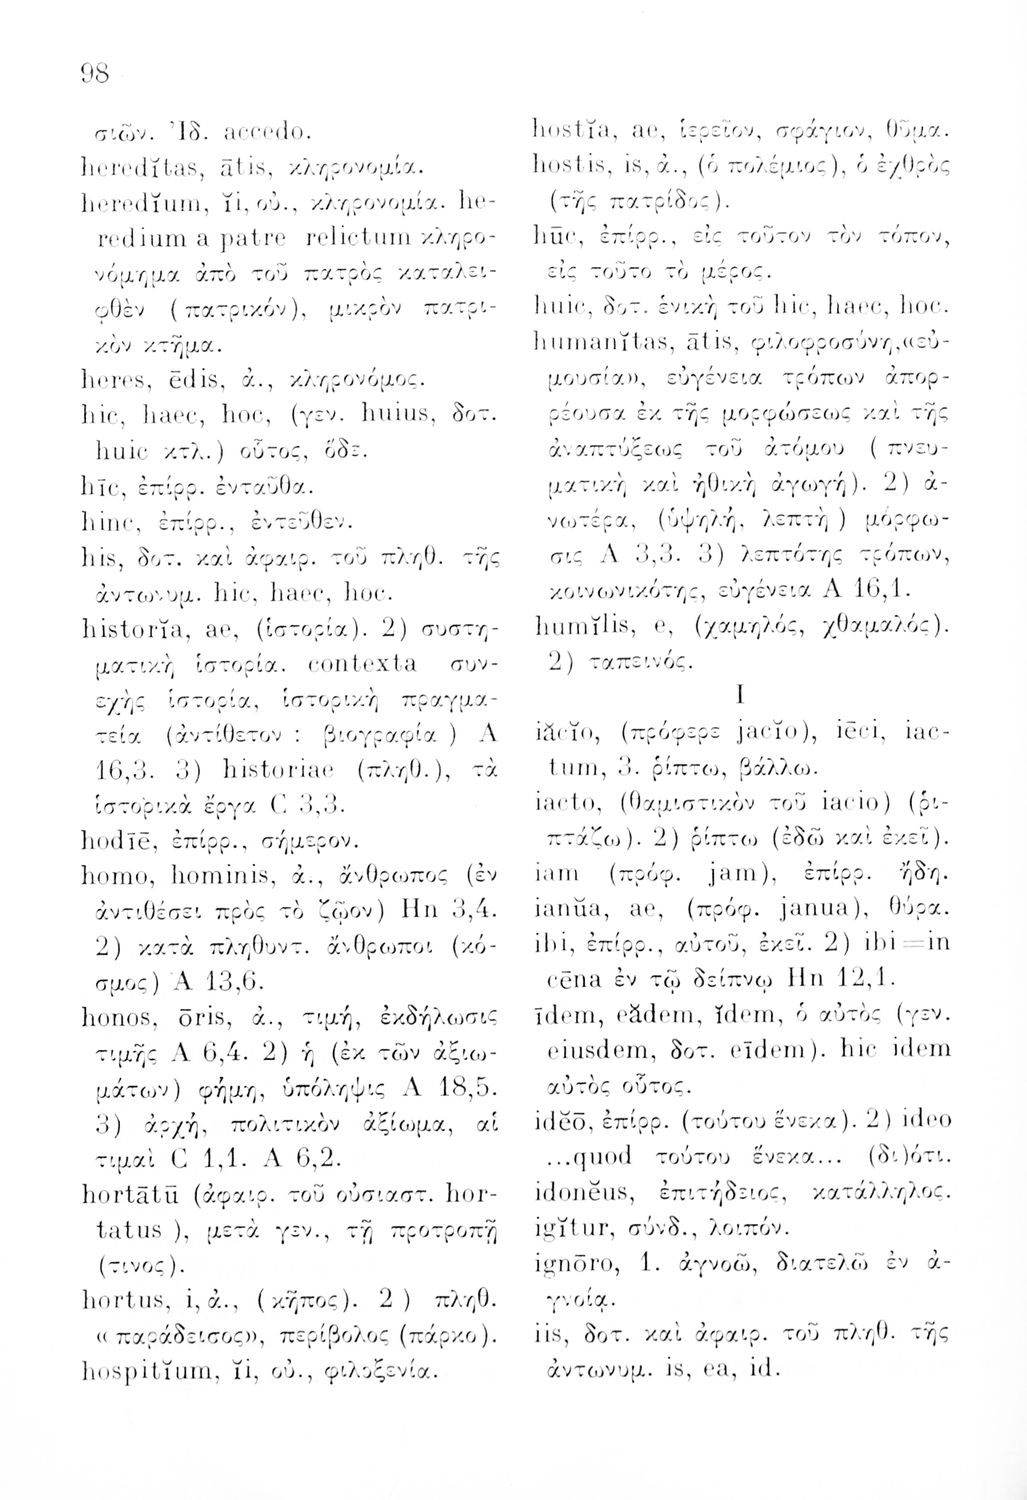 98
σιῶν. Ἰδ. accedo.
heredĭtas, ātis, κληρονομία.
heredĭum, ĭi, οὐ., κληρονομία. he-
redium a patre relictum κληρο-
νόμημα ἀπὸ τοῦ πατρὸς καταλει-
φθὲν (πατρικόν), μικρὸν πατρι-
κὸν κτῆμα.
heres, ēdis, ἀ., κληρονόμος.
hic, haec, hoc, (γεν. huius, δοτ.
huic κτλ.) οὗτος, ὅδε.
hīc, ἐπίρρ. ἐνταῦθα.
hinc, ἐπίρρ., ἐντεῦθεν.
his, δοτ. καὶ ἀφαιρ. τοῦ πληθ. τῆς
ἀντωνυμ. hic, haec, hoc.
historĭa, ae, (ἱστορία). 2) συστη-
ματικὴ ἱστορία. contexta συν-
εχὴς ἱστορία, ἱστορικὴ πραγμα-
τεία (ἀντίθετον : βιογραφία ) A
16,3. 3) historiae (πληθ.), τὰ
ἱστορικὰ ἔργα C 3,3.
hodĭē, ἐπίρρ., σήμερον.
homo, hominis, ἀ., ἄνθρωπος (ἐν
ἀντιθέσει πρὸς τὸ ζῷον) Hn 3,4.
2) κατὰ πληθυντ. ἄνθρωποι (κό-
σμος) A 13,6.
honos, ōris, ἀ., τιμή, ἐκδήλωσις
τιμῆς A 6,4. 2) ἡ (ἐκ τῶν ἀξιω-
μάτων) φήμη, ὑπόληψις A 18,5.
3) ἀρχή, πολιτικὸν ἀξίωμα, αἱ
τιμαὶ C 1,1. A 6,2.
hortātū (ἀφαιρ. τοῦ οὐσιαστ. hor-
tatus ), μετὰ γεν., τῇ προτροπῇ
(τινος).
hortus, i, ἀ., (κῆπος). 2 ) πληθ.
«παράδεισος», περίβολος (πάρκο).
hospitĭum, ĭi, οὐ., φιλοξενία.
hostĭa, ae, ἱερεῖον, σφάγιον, θῦμα.
hostis, is, ἀ., (ὁ πολέμιος), ὁ ἐχθρὸς
(τῆς πατρίδος).
hūc, ἐπίρρ., εἰς τοῦτον τὸν τόπον,
εἰς τοῦτο τὸ μέρος.
huic, δοτ. ἑνικὴ τοῦ hic, haec, hoc.
humanĭtas, ātis, φιλοφροσύνη, «εὐ-
μουσία», εὐγένεια τρόπων ἀπορ-
ρέουσα ἐκ τῆς μορφώσεως καὶ τῆς
ἀναπτύξεως τοῦ ἀτόμου ( πνευ-
ματικὴ καὶ ἠθικὴ ἀγωγή). 2) ἀ-
νωτέρα, (ὑψηλή, λεπτὴ ) μόρφω-
σις A 3,3. 3) λεπτότης τρόπων,
κοινωνικότης, εὐγένεια A 16,1.
humĭlis, e, (χαμηλός, χθαμαλός).
2) ταπεινός.
I
iăcĭo, (πρόφερε jacĭo), iēci, iac-
tum, 3. ῥίπτω, βάλλω.
iacto, (θαμιστικὸν τοῦ iacio) (ῥι-
πτάζω). 2) ῥίπτω (ἐδῶ καὶ ἐκεῖ).
iam (πρόφ. jam), ἐπίρρ. ἤδη.
ianŭa, ae, (πρόφ. janua), θύρα.
ibi, ἐπίρρ., αὐτοῦ, ἐκεῖ. 2) ibi=in
cēna ἐν τῷ δείπνῳ Hn 12,1.
īdem, eădem, ĭdem, ὁ αὐτὸς (γεν.
eiusdem, δοτ. eīdem). hic idem
αὐτὸς οὗτος.
idĕō, ἐπίρρ. (τούτου ἕνεκα). 2) ideo
...quod τούτου ἕνεκα... (δι)ότι.
idonĕus, ἐπιτήδειος, κατάλληλος.
igĭtur, σύνδ., λοιπόν.
ignōro, 1. ἀγνοῶ, διατελῶ ἐν ἀ-
γνοίᾳ.
iis, δοτ. καὶ ἀφαιρ. τοῦ πληθ. τῆς
ἀντωνυμ. is, ea, id.